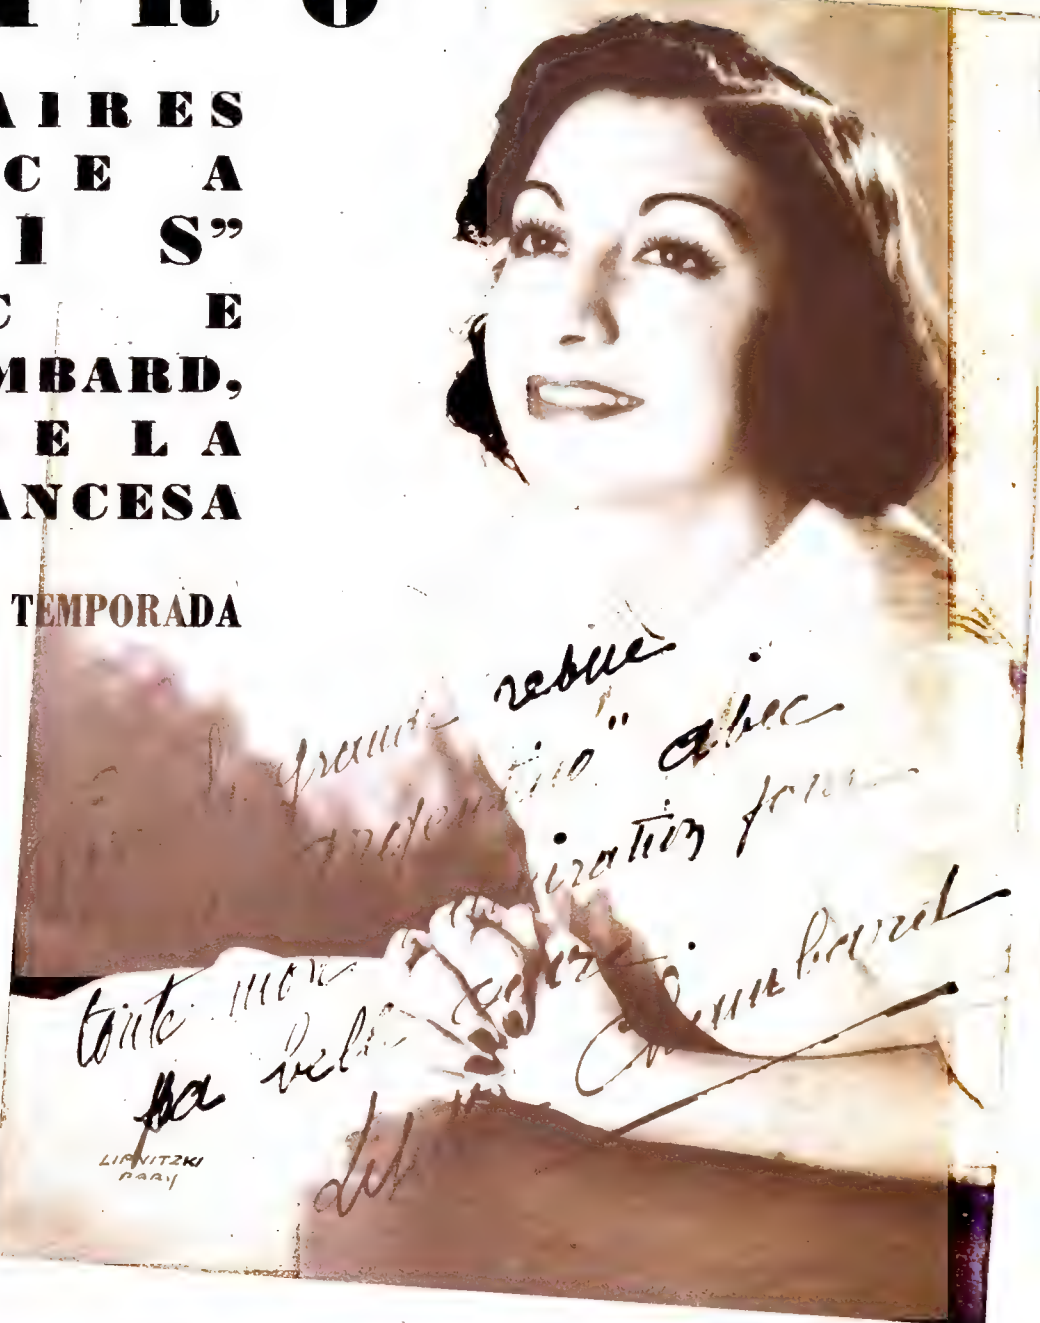 T R O
AIRES
CE A
I S”
C E
MBARD,
E LA
ANCESA
TEMPORADA
grande rebue
argentino" abec
toute mon
iration pour
sa belle
Lombard
LIPNITZKI
PARIS